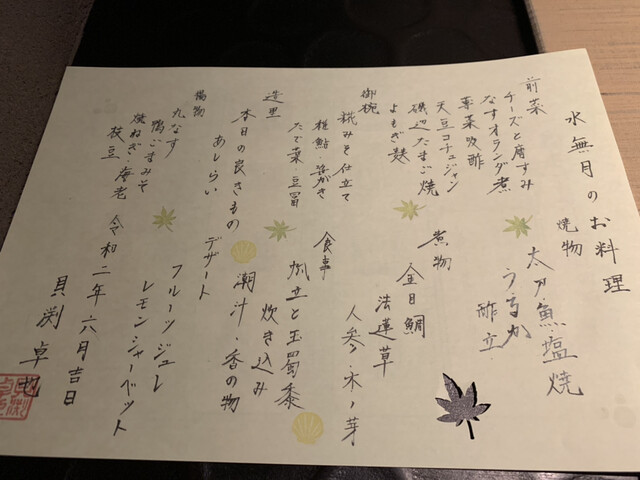 水無月のお料理
前菜
チーズと唐すみ
なすオランダ煮
蓴菜吸酢
天豆コチュジャン
磯辺たまご焼
よもぎ麸
御椀
糀みそ仕立て
稚鮎・笹がき
たで葉・豆冨
造里
本日の良きもの
あしらい
揚物
丸なす
鴨ごまみそ
焼ねぎ・唐老
枝豆
焼物
太刀魚塩焼
うるか
酢立
煮物
金目鯛
法蓮草
人参・木ノ芽
食事
帆立と玉蜀黍
炊き込み
潮汁・香の物
デザート
フルーツジュレ
レモンシャーベット
令和二年六月吉日
貝渕卓也